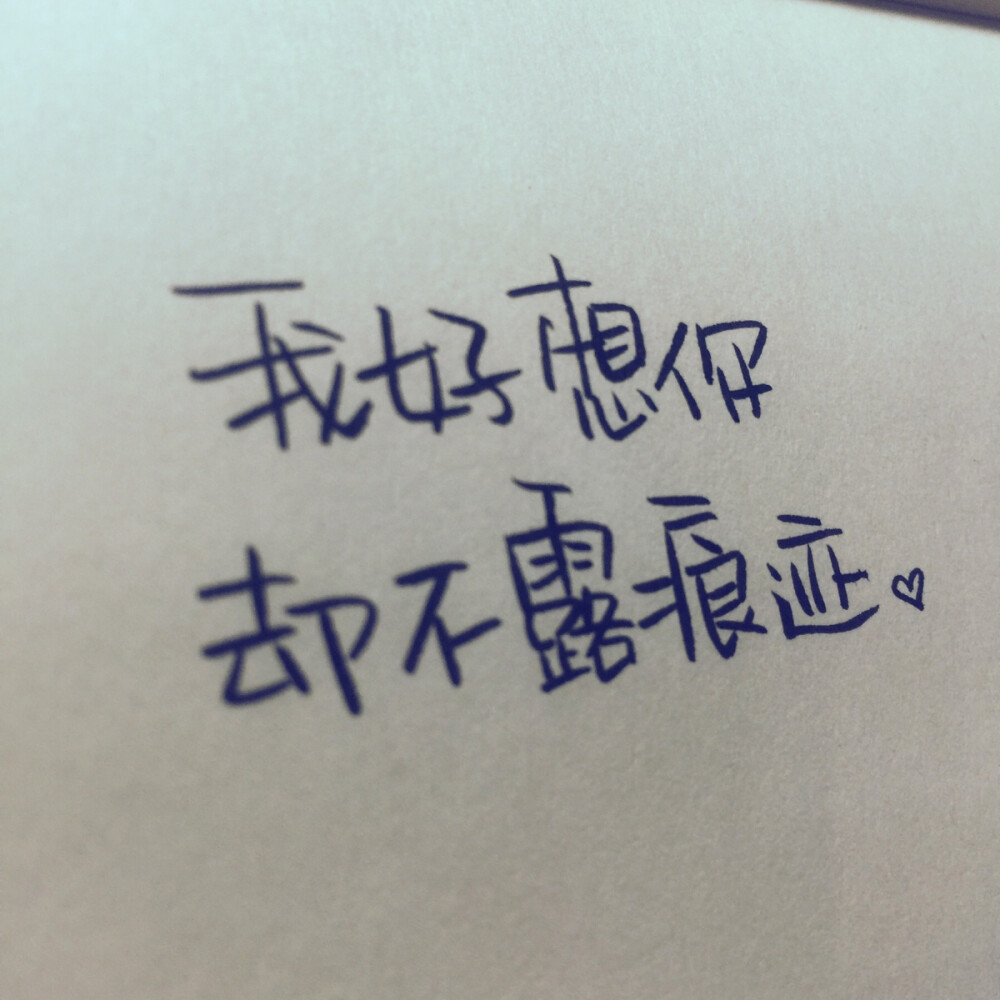 我好想你
却不露痕迹♡